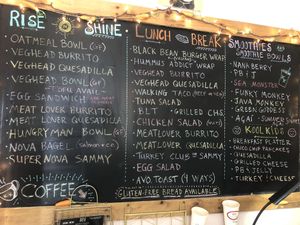 RISE & SHINE
OATMEAL BOWL (GF)
VEGHEAD BURRITO
VEGHEAD QUESADILLA
VEGHEAD BOWL
EGG SANDWICH
MEAT LOVER BURRITO
MEAT LOVER QUESADILLA
HUNGRYMAN BOWL (GF)
NOVA BAGEL
SUPERNOVA SAMMY
COFFEE
LUNCH BREAK
BLACK BEAN BURGER WRAP
HUMMUS ADDICT WRAP
VEGHEAD BURRITO
VEGHEAD QUESADILLA
WALKING TACO
TUNA SALAD
BLT GRILLED CHS
CHICKEN SALAD
MEATLOVER BURRITO
MEATLOVER QUESADILLA
TURKEY CLUB SAMMY
EGG SALAD
AVO TOAST (4 WAYS)
GLUTEN-FREE BREAD AVAILABLE
SMOOTHIES
SMOOTHIE BOWLS
NANA BERRY
PB & J
SEA MONSTER
FUNKY MONKEY
JAVA MONKEY
GREEN GODDESS
AÇAÍ
KOOL KIDZ
BREAKFAST PLATTER
CHOCO CHIP PANCAKES
QUESADILLA
GRILLED CHEESE
PB & JELLY
TURKEY & CHEESE